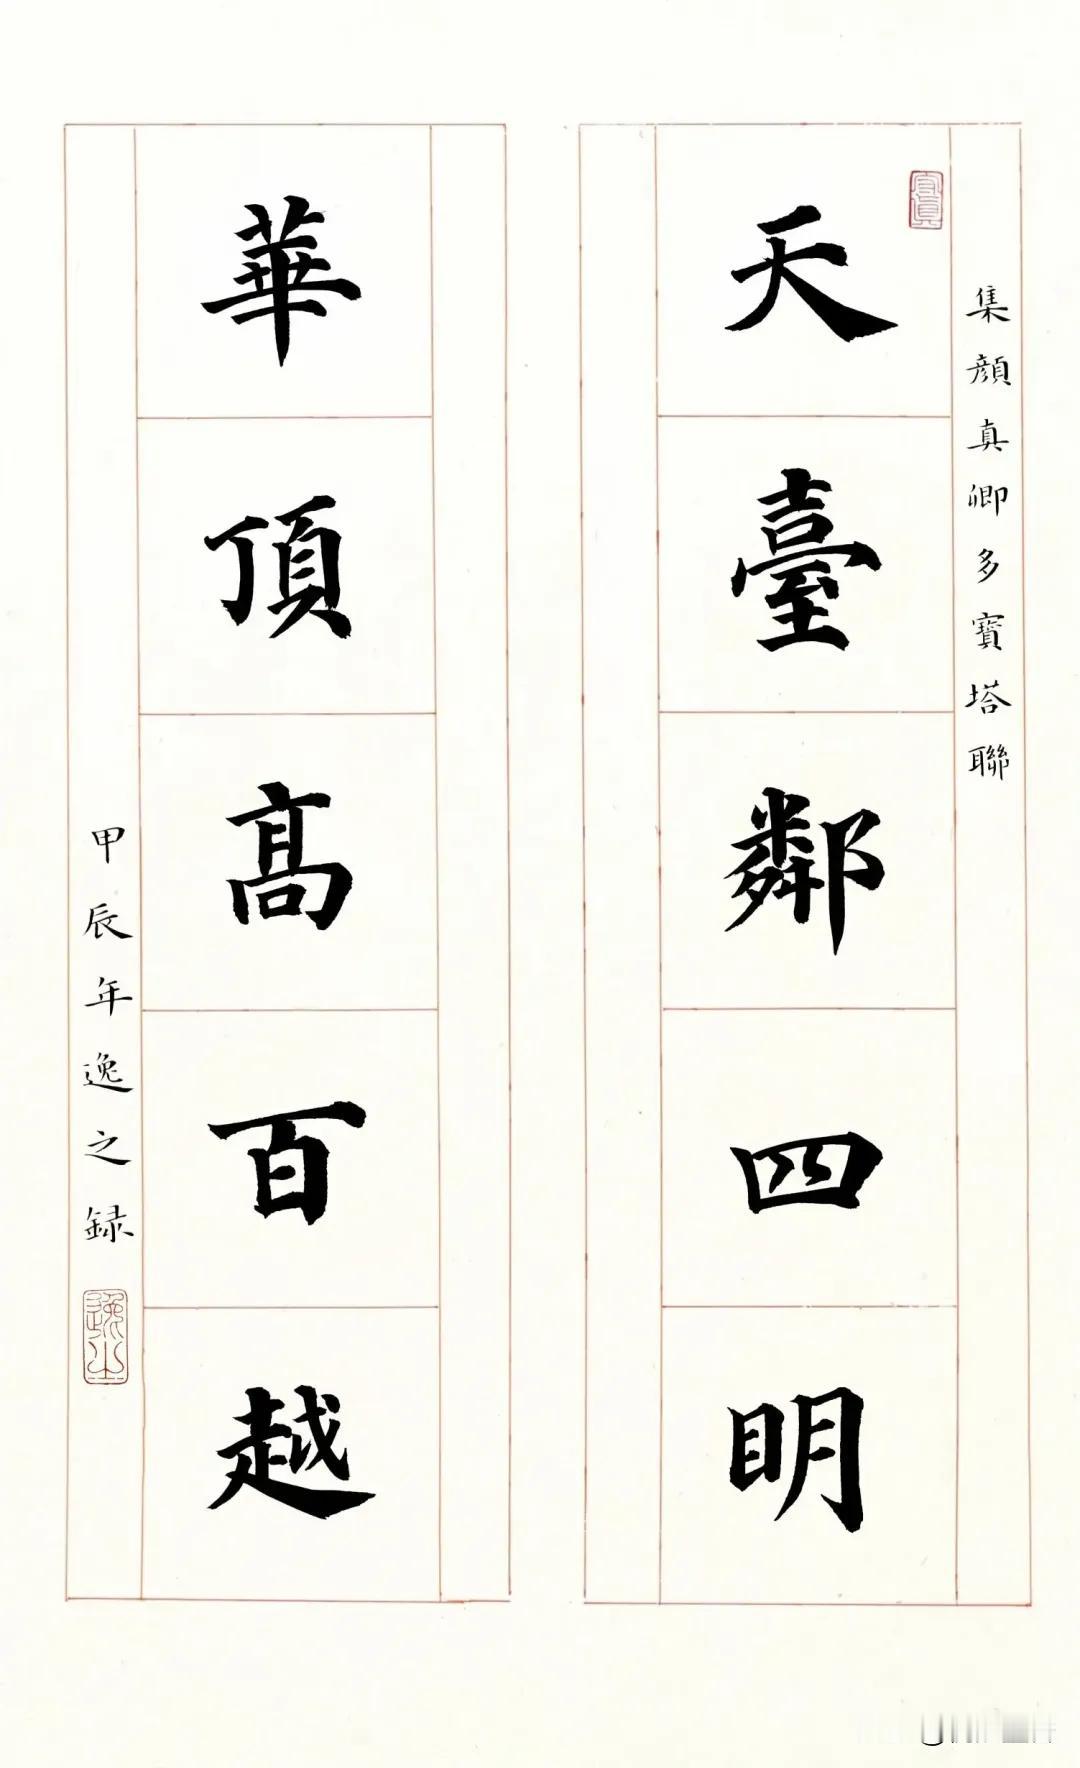 集顏真卿多寶塔聯
天臺鄰四明
華頂高百越
甲辰年逸之録
逸之